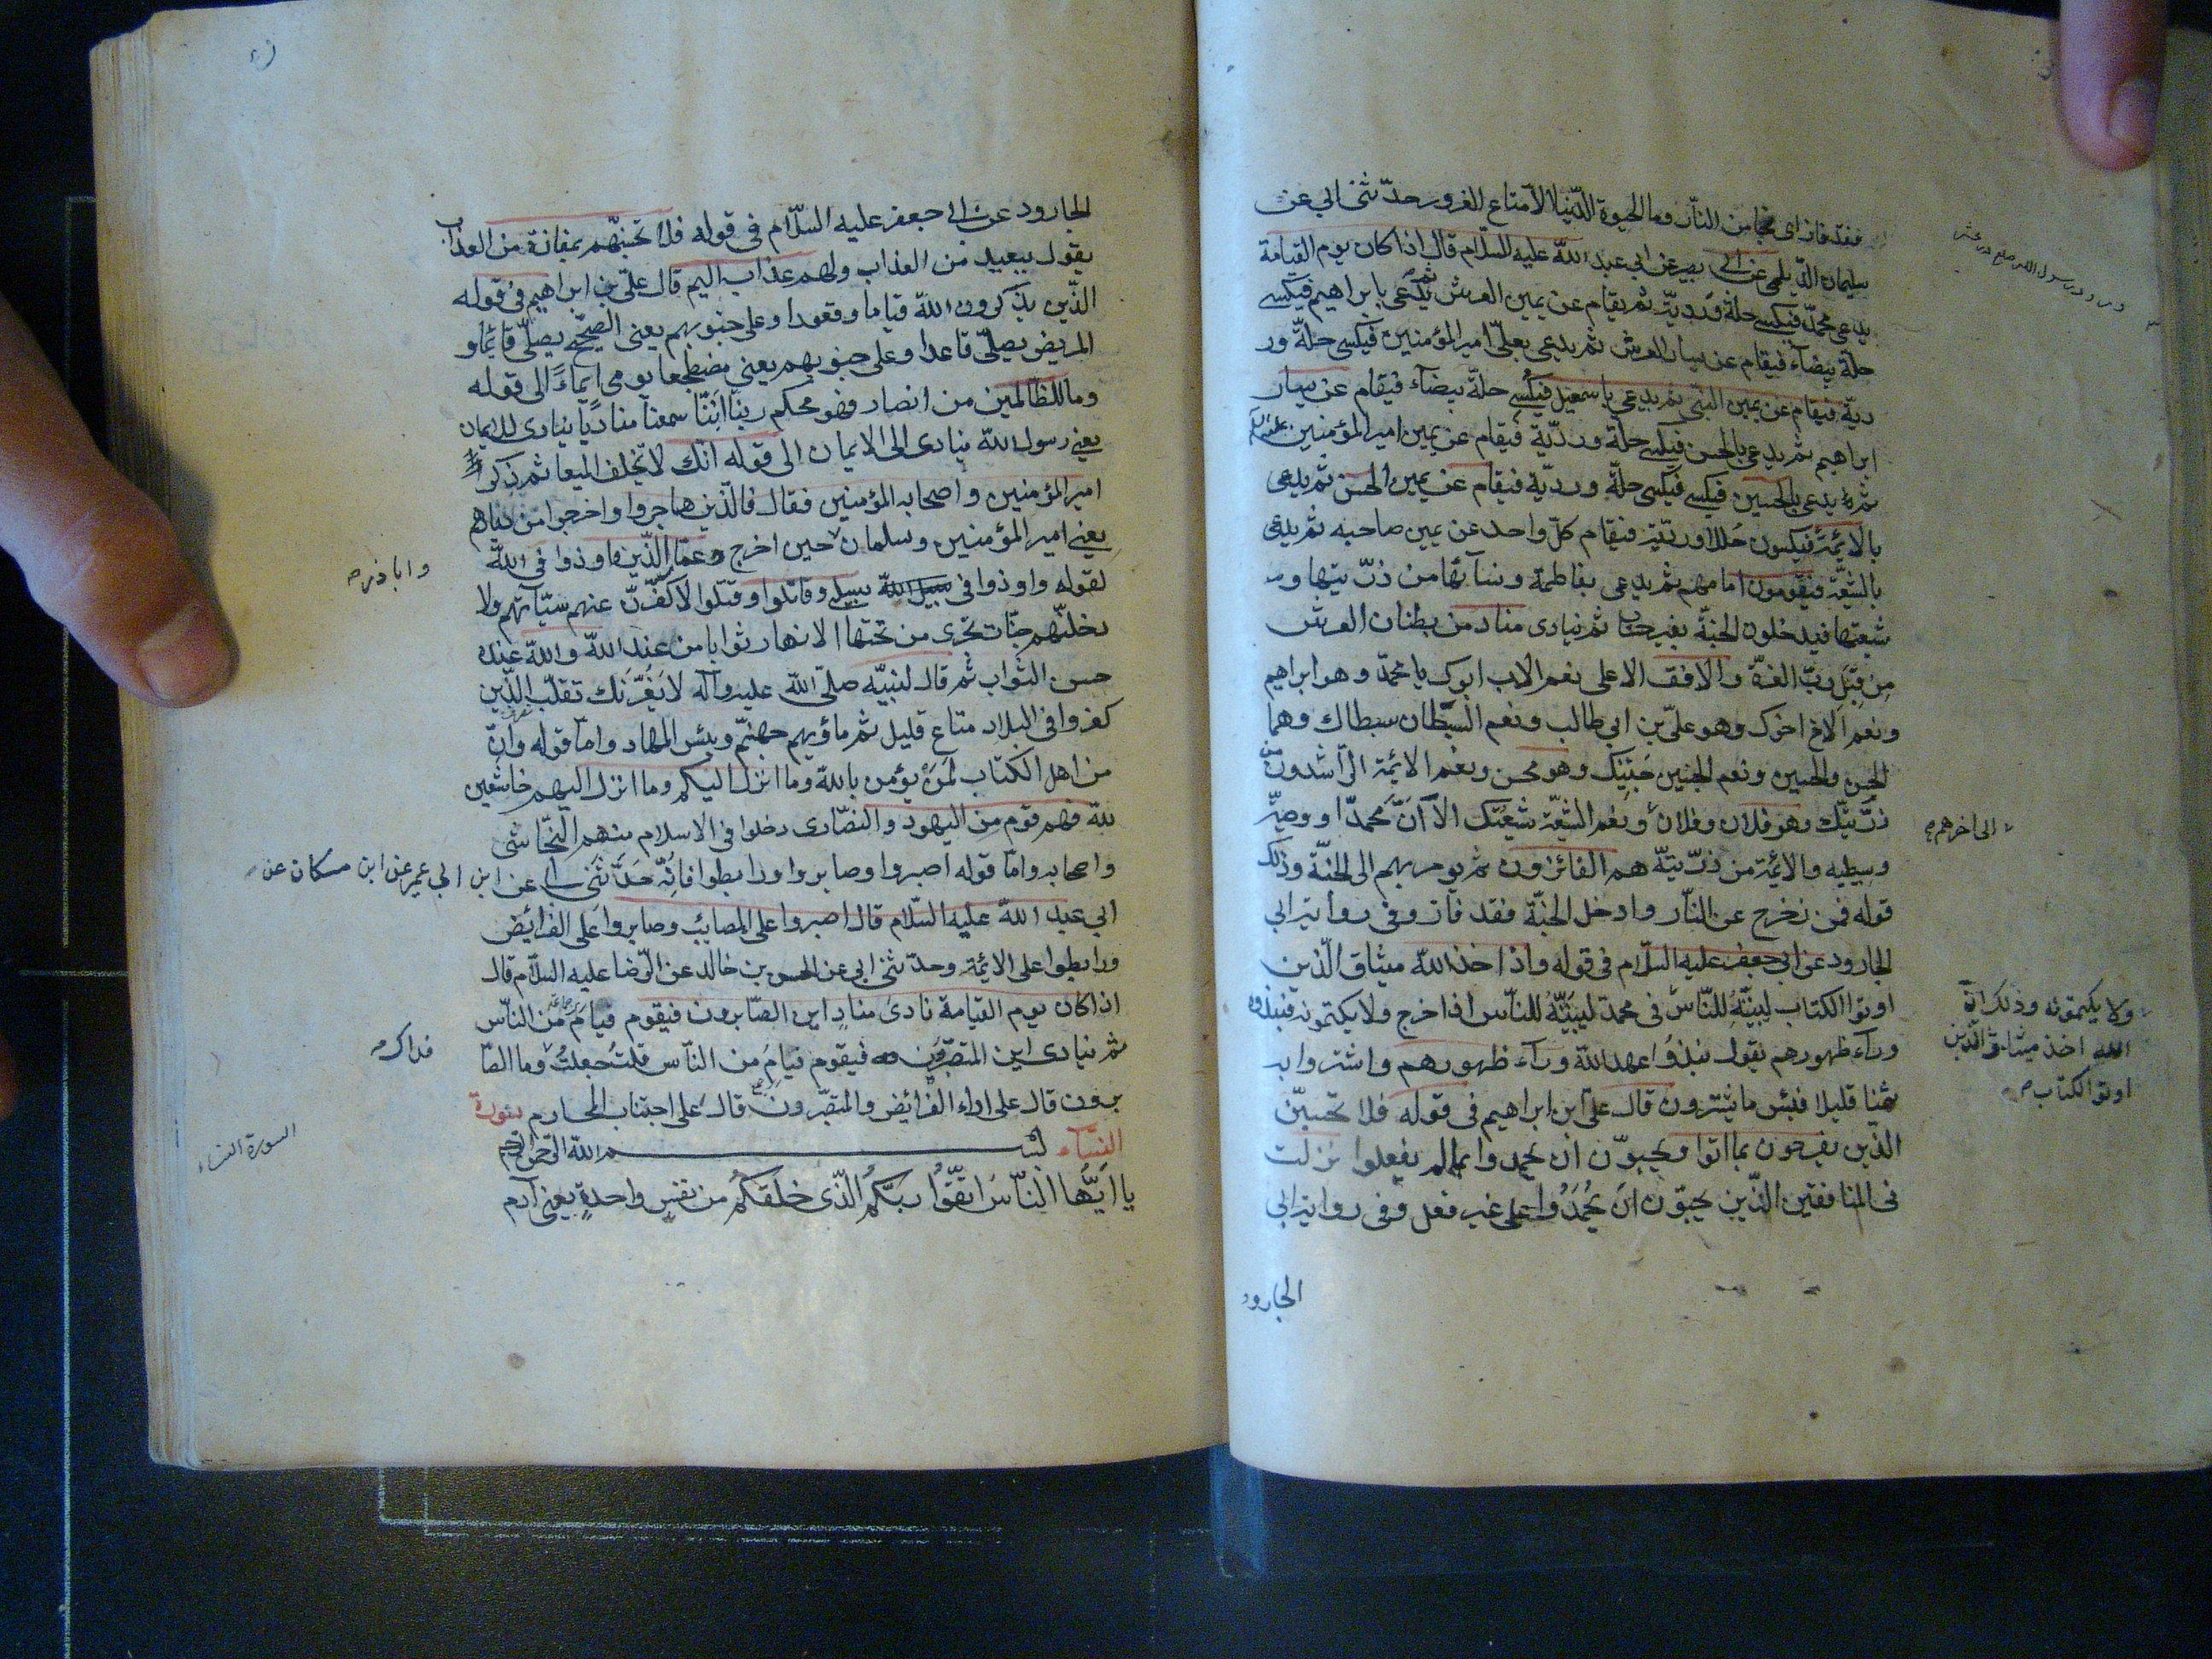 فقد فاز اى نجا من النار وما الحيوة الدنيا الا متاع الغرور حدثنى ابى عن
سليمان الديلمى عن ابى بصير عن ابى عبد الله عليه السلام قال اذا كان يوم القيامة
يدعى محمد فيكسى حلة وردية ثم يقام عن يمين العرش ثم يدعى بابراهيم فيكسى
حلة بيضآء فيقام عن يسار العرش ثم يدعى بعلى امير المؤمنين فيكسى حلة ور
دية فيقام عن يمين النبى ثم يدعى باسمعيل فيكسى حلة بيضآء فيقام عن يسار
ابراهيم ثم يدعى بالحسن فيكسى حلة وردية فيقام عن يمين امير المؤمنين
ثم يدعى بالحسين فيكسى فيكسى حلة وردية فيقام عن يمين الحسن ثم يدعى
بالائمة فيكسون حللا وردية فيقام كل واحد عن يمين صاحبه ثم يدعى
بالشيعة فيقومون امامهم ثم يدعى بفاطمة ونسآئها من ذريتها و
شيعتها فيدخلون الجنة بغير حساب ثم ينادى مناد من بطنان العرش
من قبل رب العزة والافق الاعلى نعم الاب ابوك يا محمد وهو ابراهيم
ونعم الاخ اخوك وهو على بن ابى طالب ونعم السبطان سبطاك وهما
الحسن والحسين ونعم الجنين جنينك وهو محسن ونعم الائمة الراشدون من
ذريتك وهو فلان وفلان ونعم الشيعة شيعتك الا ان محمدا ووصيه
الى اخرهم
وسبطيه والائمة من ذريته هم الفائزون ثم يومر بهم الى الجنة وذلك
قوله فمن زحزح عن النار وادخل الجنة فقد فاز وفى رواية ابى
الجارود عن ابى جعفر عليه السلام فى قوله واذ اخذ الله ميثاق الذين
اوتوا الكتاب ليبينه للناس فى محمد ليبيننه للناس اذا خرج ولا يكتمونه فنبذوه
ولا يكتمونه وذلك ان
الله اخذ ميثاق الذين
اوتوا الكتاب
ورآء ظهورهم يقول نبذوا عهد الله ورآء ظهورهم واشتروا به
ثمنا قليلا فبئس ما يشترون قال على ابن ابراهيم فى قوله فلا تحسبن
الذين يفرحون بما اتوا ويحبون ان يحمدوا بما لم يفعلوا نزلت
فى المنافقين الذين يحبون ان يحمدوا على غير فعل وفى رواية ابى
الجارود
الجارود عن ابى جعفر عليه السلام فى قوله فلا تحسبنهم بمفازة من العذاب
يقول ببعيد من العذاب ولهم عذاب اليم قال على بن ابراهيم فى قوله
الذين يذكرون الله قياما وقعودا وعلى جنوبهم يعنى الصحيح يصلى قائما و
المريض يصلى قاعدا وعلى جنوبهم يعنى مضطجعا يومى ايماءً الى قوله
وما للظالمين من انصار فهو محكم ربنا اننا سمعنا مناديا ينادى للايمان
يعنى رسول الله ينادى الى الايمان الى قوله انك لا تخلف الميعاد ثم ذكر
امير المؤمنين واصحابه المؤمنين فقال فالذين هاجروا واخرجوا من ديارهم
يعنى امير المؤمنين وسلمان حين اخرج وعمار الذين اوذوا فى الله
واباذر
لقوله واوذوا فى سبيل الله سبيلى وقاتلوا وقتلوا لاكفرن عنهم سيآتهم ولا
دخلنهم جنات تجرى من تحتها الانهار ثوابا من عند الله والله عنده
حسن الثواب ثم قال لنبيه صلى الله عليه وآله لا يغرنك تقلب الذين
كفروا فى البلاد متاع قليل ثم ماويهم جهنم وبئس المهاد واما قوله وان
من اهل الكتاب لمن يؤمن بالله وما انزل اليكم وما انزل اليهم خاشعين
لله فهم قوم من اليهود والنصارى دخلوا فى الاسلام منهم النجاشى
واصحابه واما قوله اصبروا وصابروا ورابطوا فانه حدثنى ابى عن ابن ابى عمير عن ابن مسكان عن
ابى عبد الله عليه السلام قال اصبروا على المصايب وصابروا على الفرائض
ورابطوا على الائمة وحدثنى ابى عن الحسن بن خالد عن الرضا عليه السلام قال
اذا كان يوم القيامة نادى مناد اين الصابرون فيقوم فيام من الناس
ثم ينادى اين المتصبرون فيقوم فيام من الناس قلت جعلت وما الصا
فداك
برون قال على اداء الفرائض والمتصبرون قال على اجتناب المحارم سورة
النسآء بسم الله الرحمن الرحيم
السورة النساء
يا ايها الناس اتقوا ربكم الذى خلقكم من نفس واحدة يعنى آدم